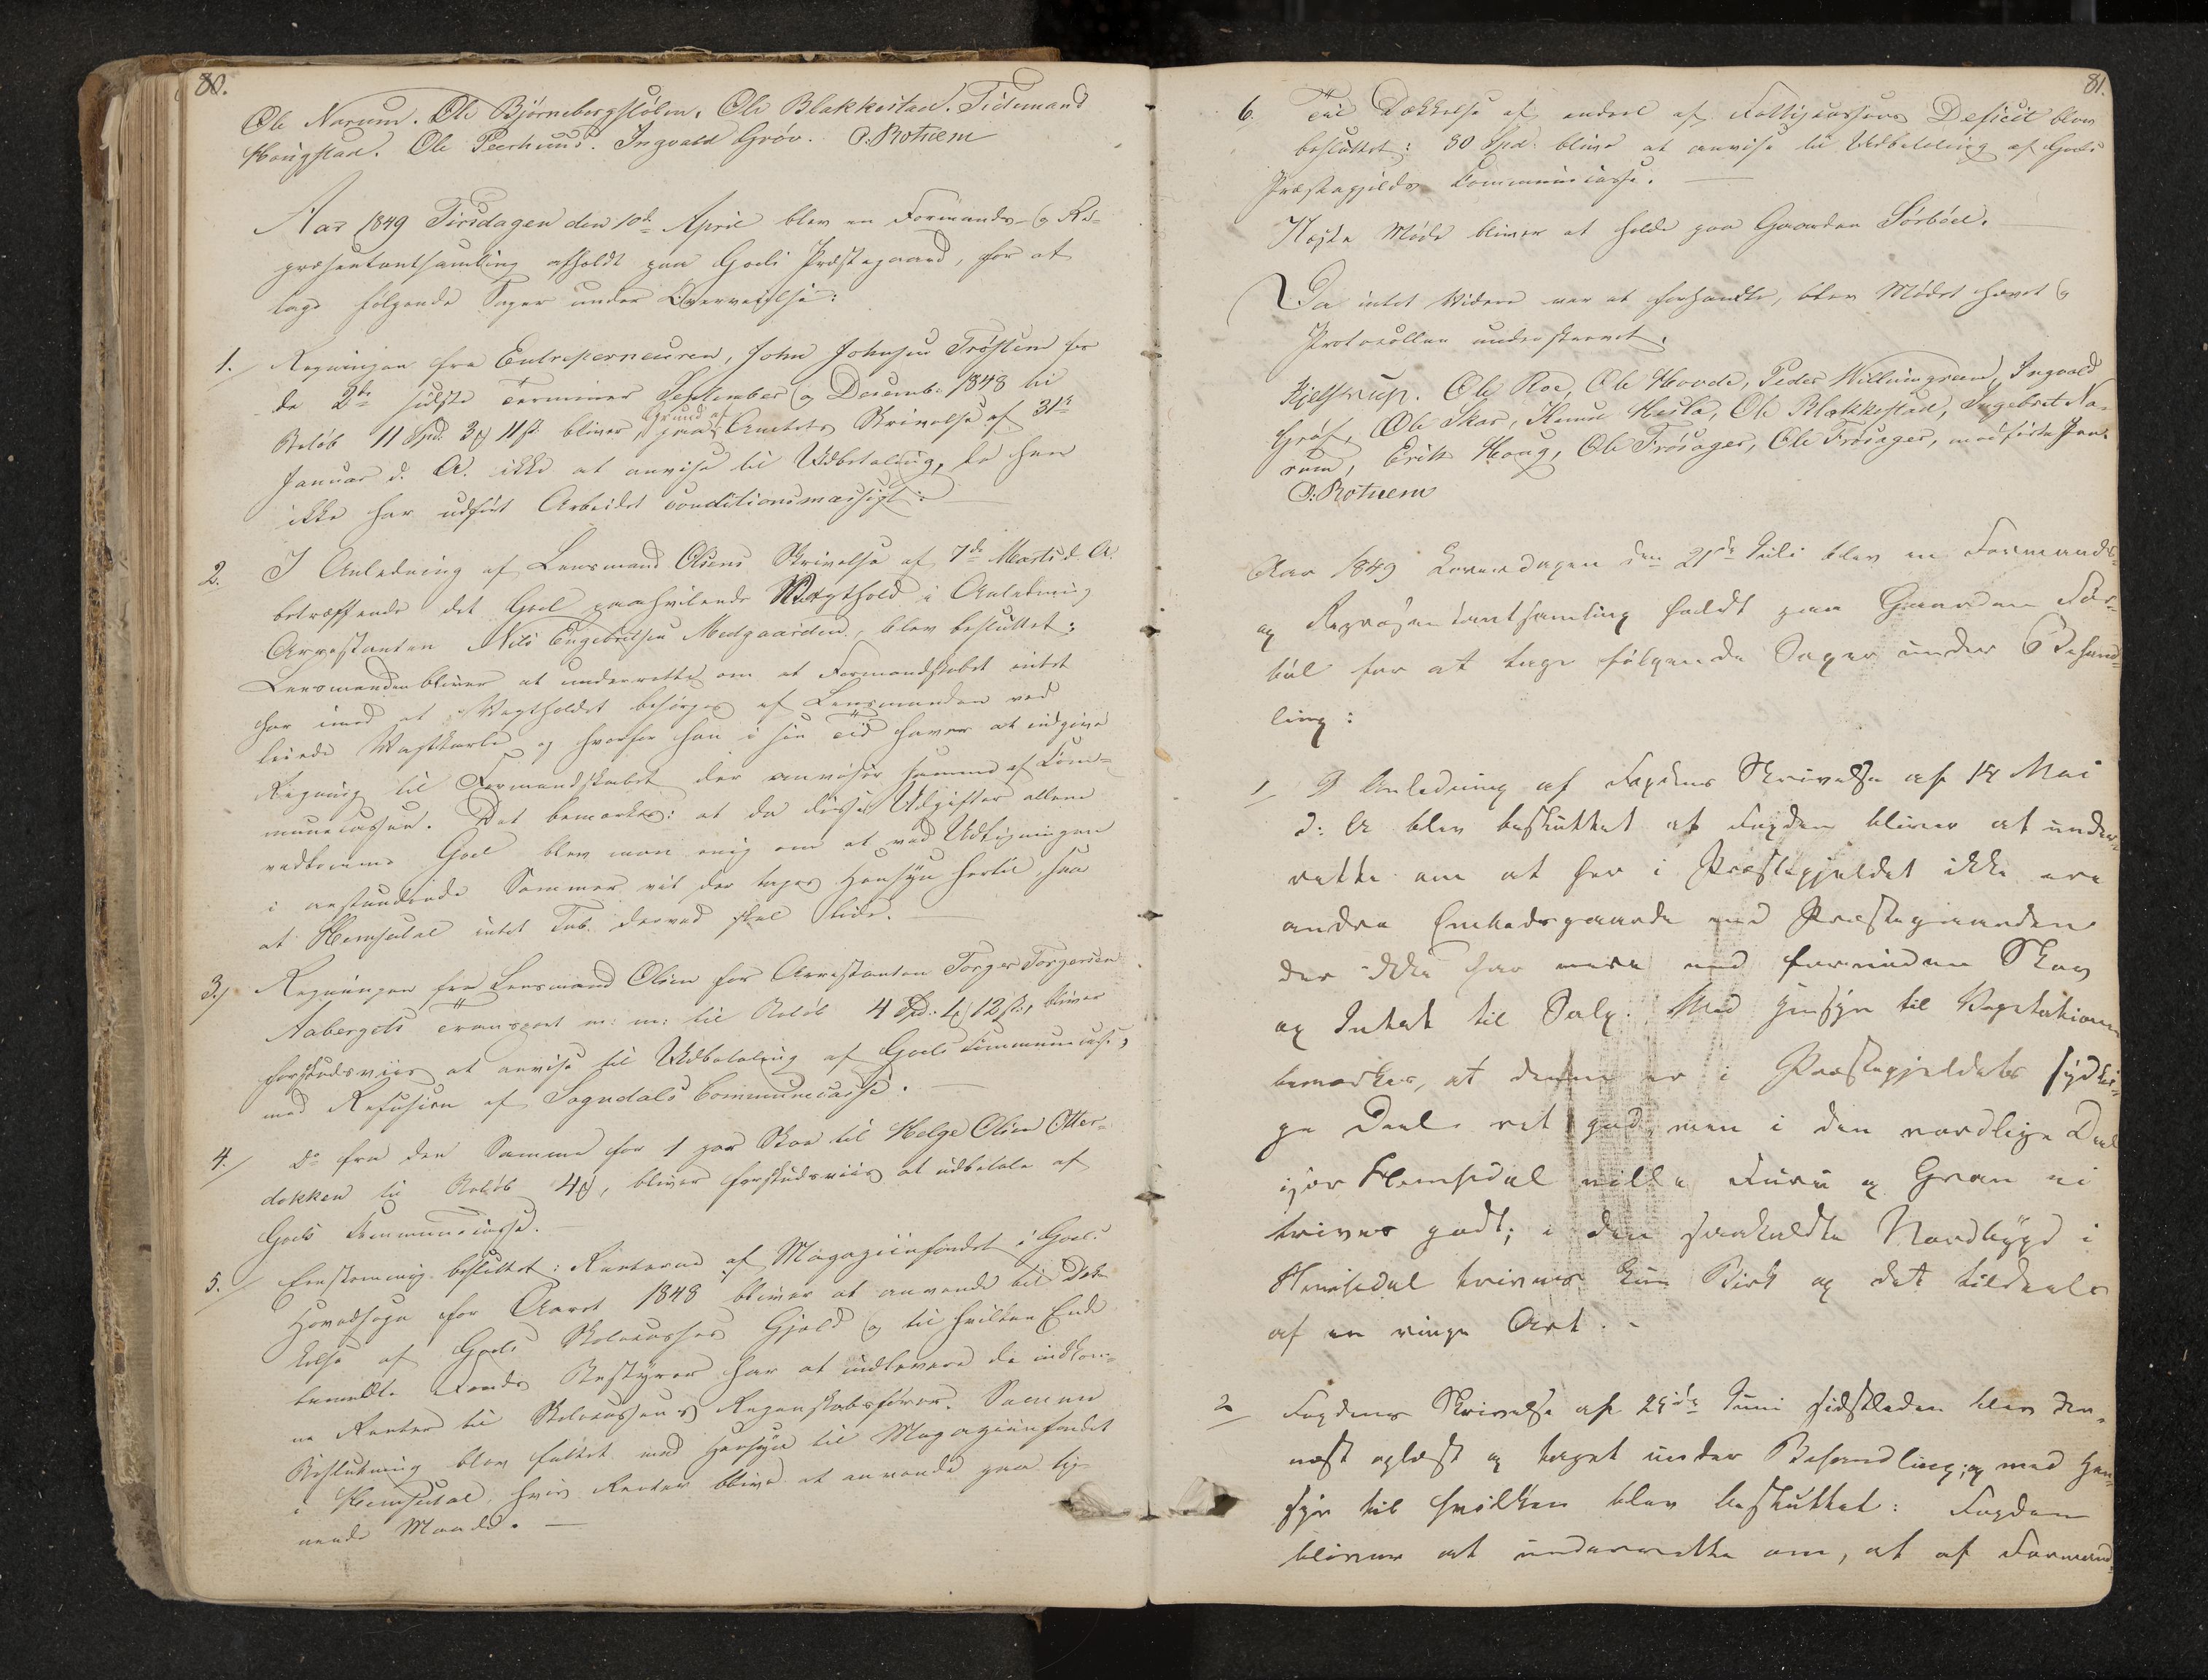 80.
Ole Narum. Ole Björnebergstölen, Ole Blakkestad. Tidemand
Hougstad. Ole Peershuus. Ingvald Gröv. O: Rotnem
Aar 1849 Tirsdagen den 10de April blev en Formands- og Re-
præsentantsamling afholdt paa Goels Præstegaard, for at
tage følgende Sager under Overveielse:
1. Regningen fra Entreperneuren, John Johnsen Tröstem for
de 2de sidste Terminer September og Decemb: 1848 til
Beløb 11 Spd. 3 ort 11 s. bliver paa Grund af Amtets Skrivelse af 31te
Januar d. A. ikke at anvise til Udbetaling, da han
ikke har udført Arbeidet conditionsmæssigt:
2. I Anledning af Lensmand Olsens Skrivelse af 7de Marts d. A.
betræffende det Goel paahvilende Vagthold i Anledning
Arrestanten Nils Engebretsen Medgaarden, blev besluttet:
Lensmanden bliver at underrette om at Formandskabet intet
har imod at Vagtholdet besørges af Lensmanden ved
leiede Vagtkarle, og hvorfor han i sin Tid haver at indgive
Regning til Formandskabet der anviser samme af Com-
munecassen. Det bemærkes: at da disse Udgifter allene
vedkomme Goel blev man enig om at ved Udligningen
i anstundende Sommer vil der tages Hensyn hertil saa
at Hemsedal intet Tab derved skal lide.
3. Regningen fra Lensmand Olsen for Arrestanten Torger Torgersen
Aabergets Transport m: m: til Beløb 4 Spd. 1 ort 12 s., bliver
forskudsviis at anvise til Udbetaling af Goels Communecasse,
mod Refusion af Sogndals Communecasse.
4. Do fra den Samme for 1 par Skoe til Helge Olsen Otter-
dokken til Beløb 4 ort, bliver forskudsviis at udbetale af
Goels Communecasse.
5. Eenstemmig besluttet: Renterne af Magaziinfondet i Goels
Hovedsogn for Aaret 1848 bliver at anvende til Dæk-
kelse af Goels Skolecasses Gjeld og til hvilken Ende
bemeldte Fonds Bestyrer har at udlevere de indkom-
ne Renter til Skolecassens Regnskabsfører. Samme
Beslutning blev fattet med Hensyn til Magaziinfondet
i Hemsedal, hvis Renter blive at anvende paa lig-
nende Maade.
81.
6. Til Dækkelse af endeel af Fattigcassens Deficit blev
besluttet: 80 Spd. blive at anvise til Udbetaling af Goels
Præstegjelds Communecasse.
Næste Møde bliver at holde paa Gaarden Sörböel.
Da intet Videre var at forhandle, blev Mødet hævet og
Protocollen underskrevet.
Kjelstrup. Ole Roe, Ole Hovde, Peder Villumgreen, Ingvald
Gröf, Ole Skar, Knud Hesla, Ole Blakkestad, Ingebret Na-
rum, Erik Houg, Ole Trösager, Ole Trösager, med førte Pen.
O: Rotnem
Aar 1849 Løverdagen den 21de Juli blev en Formands-
og Repræsentantsamling holdt paa Gaarden Sør-
bøl for at tage følgende Sager under Behand-
ling:
1 I Anledning af Fogdens Skrivelse af 14 Mai
d: A blev besluttet at Fogden bliver at under-
rette om at her i Præstegjeldet ikke ere
andre Embedsgaarde end Præstegaarden
der ikke har mere end fornøden Skov
og Intet til Salg. Med Hensyn til Vegetationen
bemærkes, at denne er i Præstegjeldets sydli-
ge Deel ret god, men i den nordlige Deel
især Hemsedal ville Furu og Gran ei
trives godt; i den saakaldte Nordbygd i
Hemsedal trives kun Birk og det tildeels
af en ringe Art.
2 Fogdens Skrivelse af 29de Juni sidstleden blev der-
næst oplæst og taget under Behandling; og med Hen-
syn til hvilken blev besluttet: Fogden
bliver at underrette om, at af Formand-